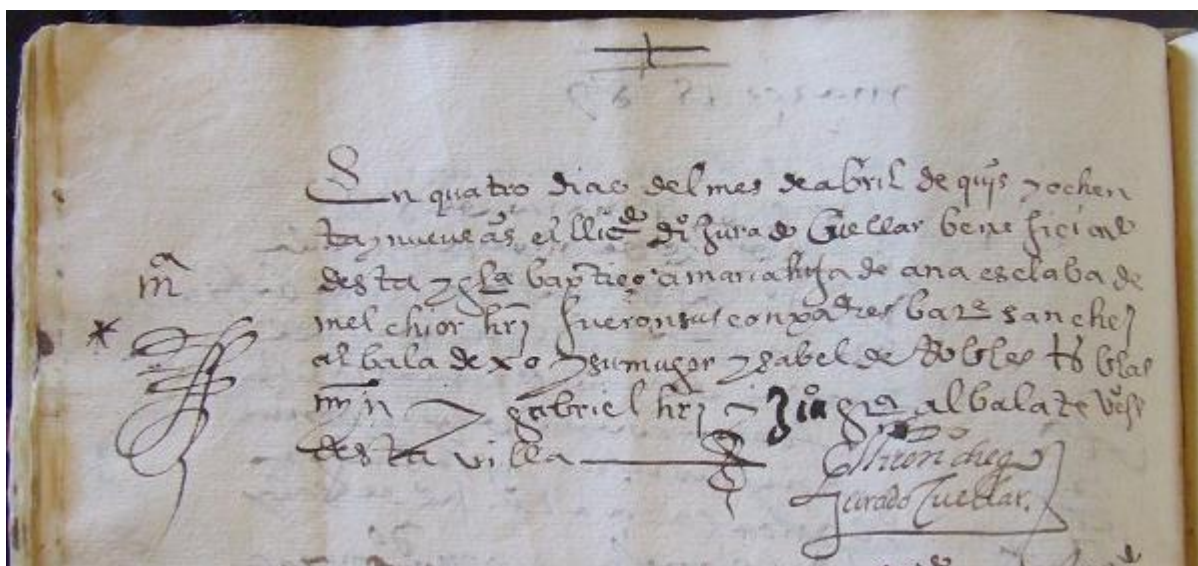 mª
En quatro dias del mes de abril de quiºs y ochen
ta y nueve aºs el llicdo dıº Jurado Cuellar beneficiado
desta yglª baptiço a maria hija de ana esclaba de
melchior hrz fueron sus conpadres barme sanchez
albaladexo y su muger ysabel de Robles tºs blas
mrn y gabriel hrz y Juº grª albalate vºs
desta villa
El lldo diego
Jurado Cuellar.